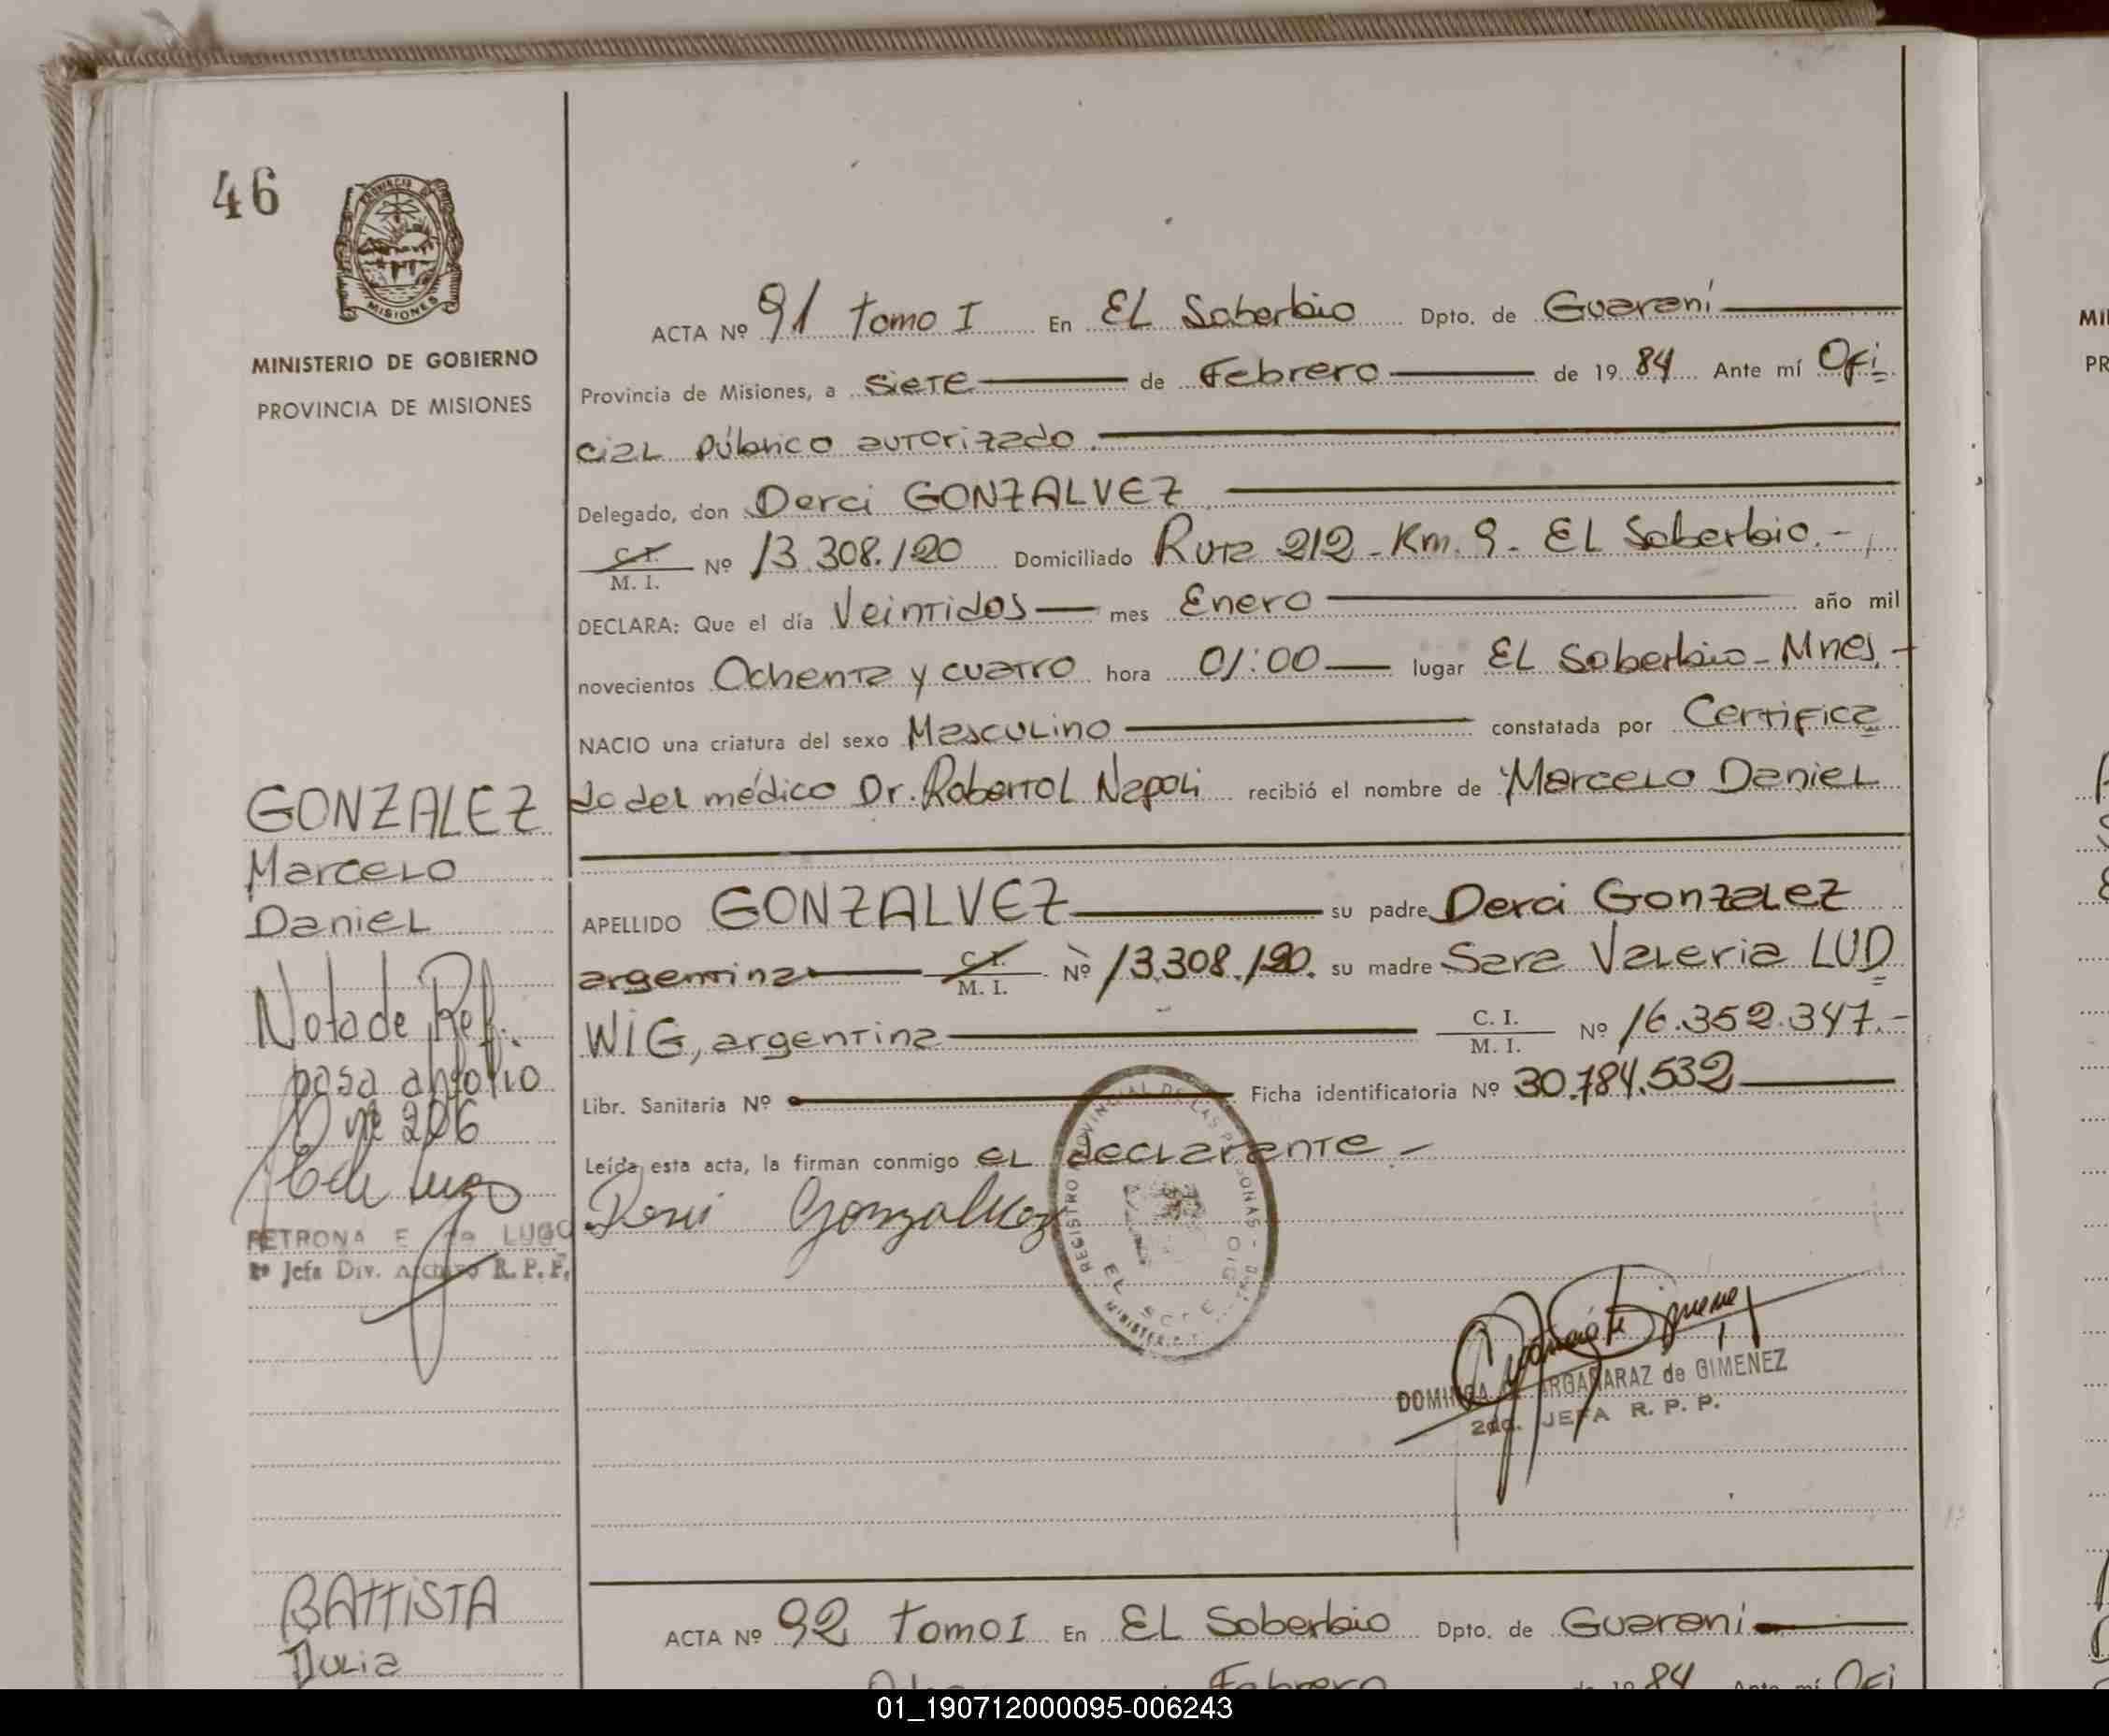 46
PROVINCIA DE
MISIONES
MINISTERIO DE GOBIERNO
PROVINCIA DE MISIONES
ACTA Nº 91 Tomo I En EL Soberbio Dpto. de Guaraní
Provincia de Misiones, a Siete de Febrero de 1984 Ante mí Ofi
cial Público autorizado.
Delegado, don Derci GONZALVEZ
C. I.
M. I. Nº 13.308.190 Domiciliado Ruta 212 - Km. 9 - EL Soberbio.-
DECLARA: Que el día Veintidos mes Enero año mil
novecientos Ochenta y cuatro hora 01:00 lugar EL Soberbio - Mnes.-
NACIO una criatura del sexo Masculino constatada por Certifica
do del médico Dr. Roberto L Napoli recibió el nombre de Marcelo Daniel
GONZALEZ
Marcelo
Daniel
Nota de Ref.
pasa al folio
nº 206
PETRONA E. de LUGO
Jefa Div. Archivo R. P. P.
APELLIDO GONZALVEZ su padre Derci Gonzalez
argentina C. I.
M. I. Nº 13.308.190. su madre Sara Valeria LUD
WIG, argentina C. I.
M. I. Nº 16.352.347.-
Libr. Sanitaria Nº Ficha identificatoria Nº 30.784.532
Leída esta acta, la firman conmigo el declarante.-
Gonzalvez
REGISTRO PROVINCIAL DE LAS PERSONAS
DOMINGA ARGAÑARAZ de GIMENEZ
2da. JEFA R. P. P.
BATTISTA
Julia
ACTA Nº 92 Tomo I En EL Soberbio Dpto. de Guaraní
Febrero de 1984 Ante mí Ofi
01_190712000095-006243